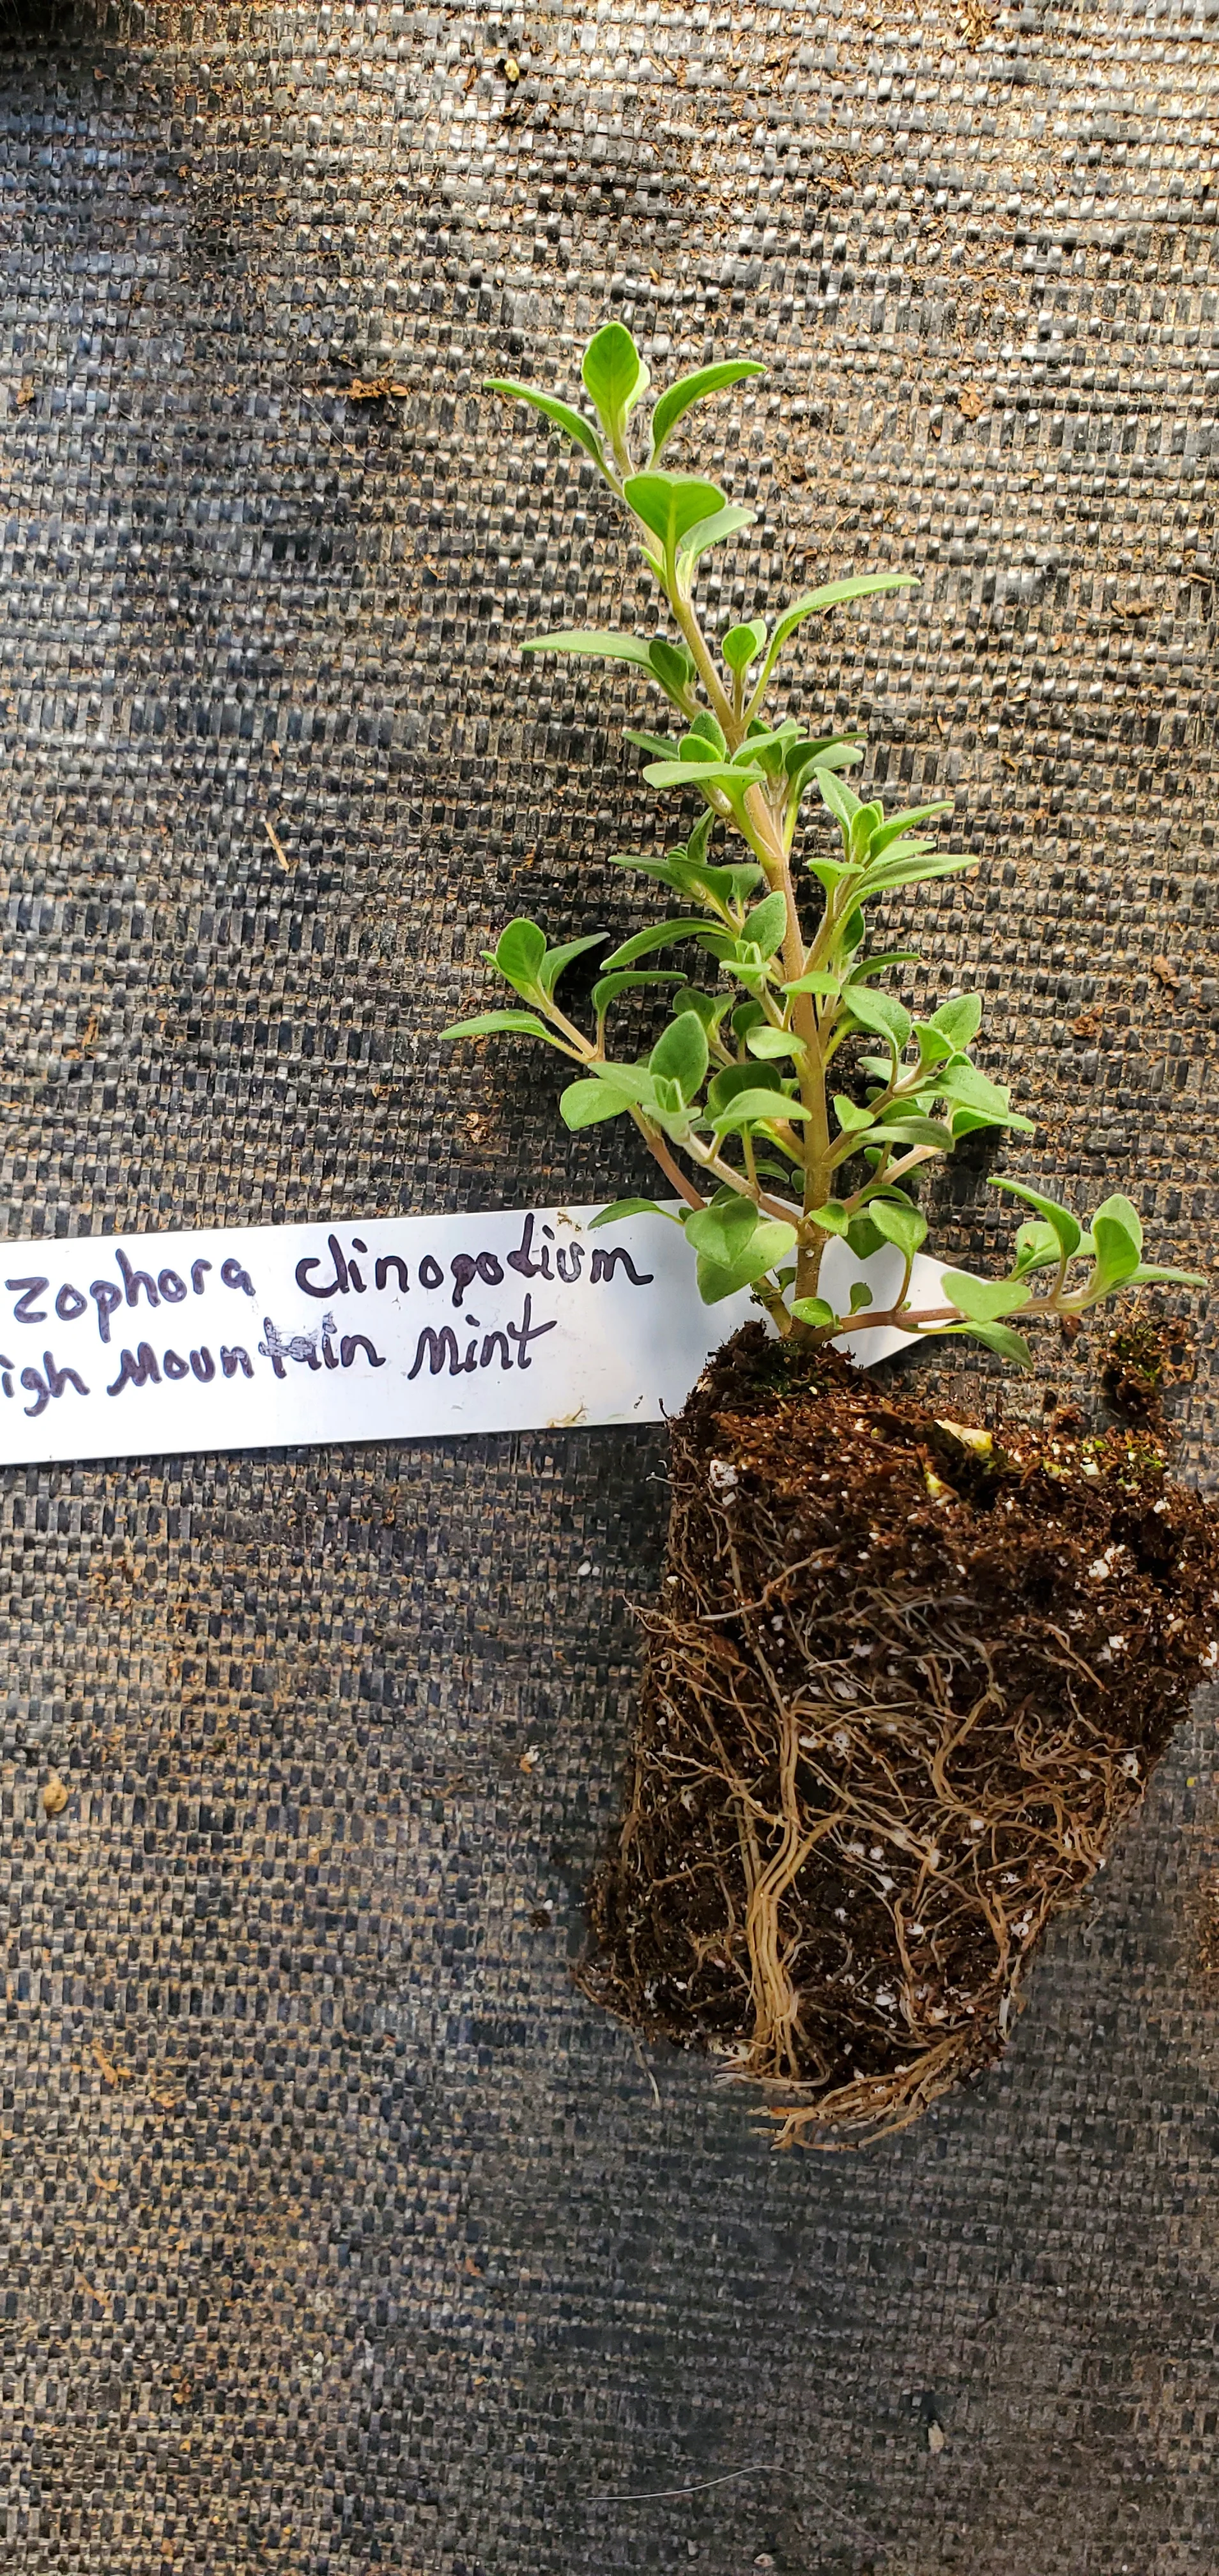 zophora clinopodium
igh Mountain Mint